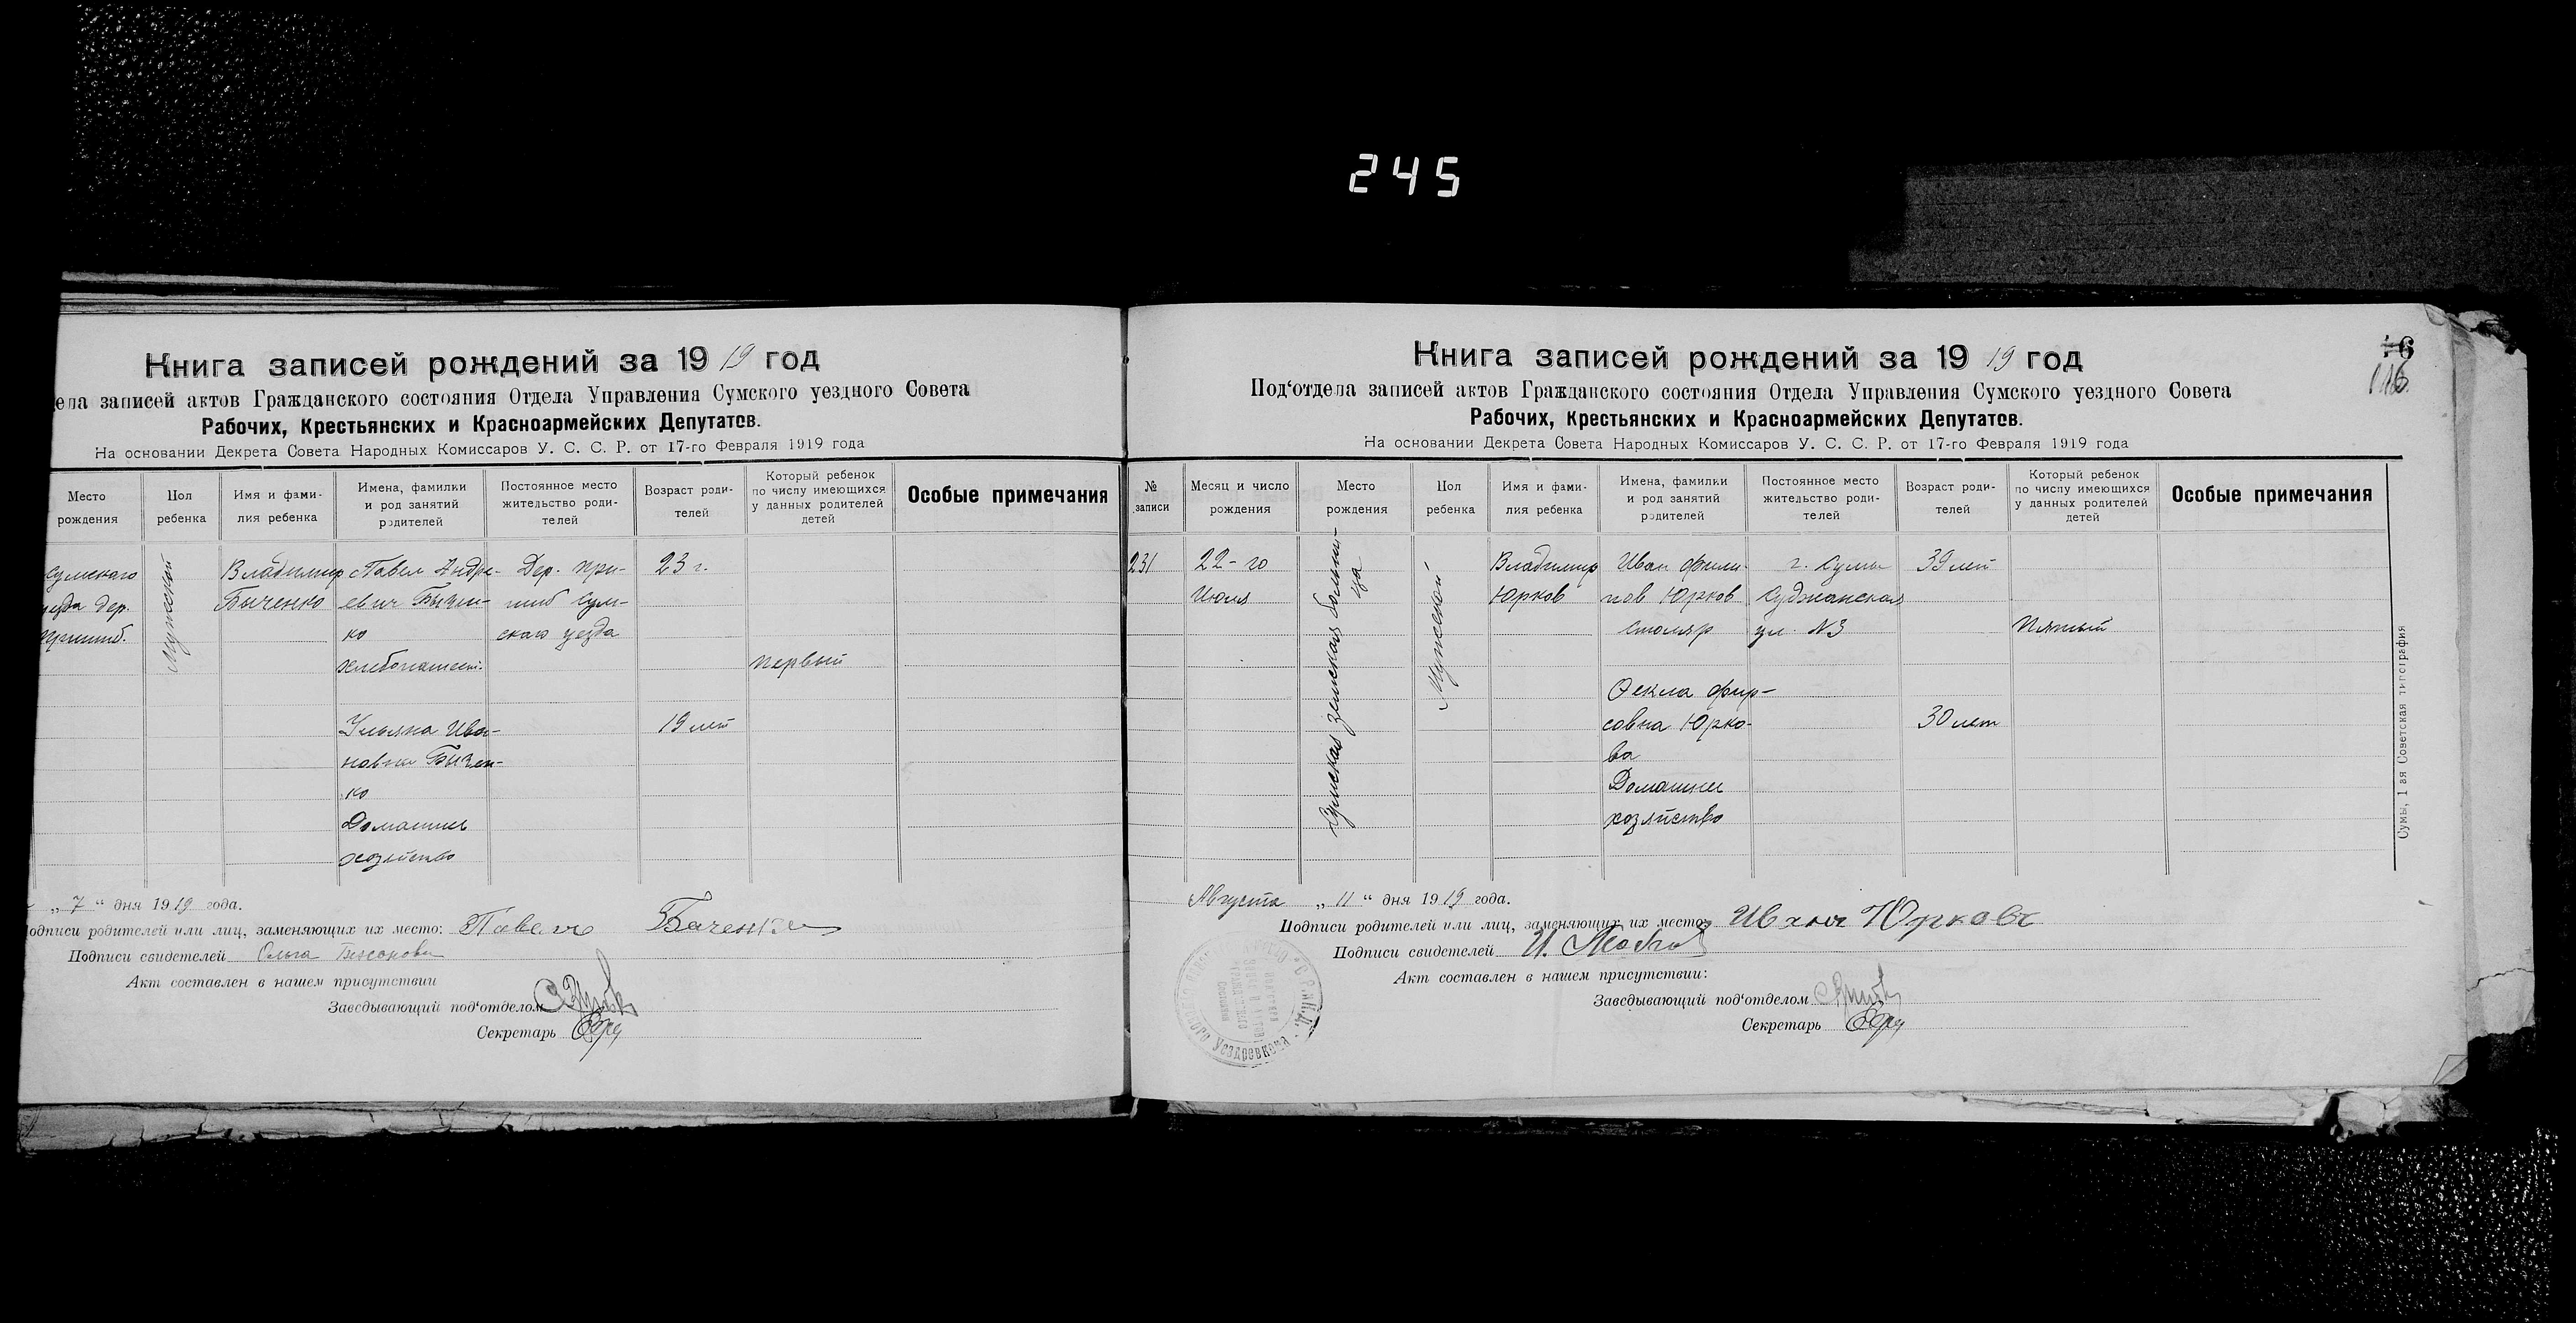 245
Книга записей рождений за 1919 год
ела записей актов Гражданского состояния Отдела Управления Сумского уездного Совета
Рабочих, Крестьянских и Красноармейских Депутатов.
На основании Декрета Совета Народных Комиссаров У. С. С. Р. от 17-го Февраля 1919 года
Место рождения
Пол ребенка
Имя и фами-
лия ребенка
Имена, фамилки
и род занятий
родителей
Постоянное место
жительство роди-
телей
Возраст роди-
телей
Который ребенок
по числу имеющихся
у данных родителей
детей
Особые примечания
Сумскаго
уезда дер.
Мужеской
Владимир
Быченко
Павел Андре-
евич Бычен-
ко
хлебопашест.
Дер. При-
щиб Сум-
скаго уезда
23 г.
первый
Ульяна Ива-
новна Бычен-
ко
Домашнее
хозяйство
19 лет
„ 7 “ дня 1919 года.
одписи родителей или лиц, заменяющих их место: Павел
Подписи свидетелей Ольга
Акт составлен в нашем присутствии
Заведывающий под‘отделом
Секретарь
Книга записей рождений за 1919 год
76
116
Под‘отдела записей актов Гражданского состояния Отдела Управления Сумского уездного Совета
Рабочих, Крестьянских и Красноармейских Депутатов.
На основании Декрета Совета Народных Комиссаров У. С. С. Р. от 17-го Февраля 1919 года
№
записи
Месяц и число
рождения
Место
рождения
Пол
ребенка
Имя и фами-
лия ребенка
Имена, фамилки
и род занятий
родителей
Постоянное место
жительство роди-
телей
Возраст роди-
телей
Который ребенок
по числу имеющихся
у данных родителей
детей
Особые примечания
231
22-го
Июля
Сумская земская больни-
ца
Мужеской
Владимир
Юрков
Иван Фили-
пов Юрков
столяр
г. Сумы
Суджанская
ул. № 3
39 лет
Пятый
Фекла Фир-
совна Юрко-
ва
Домашнее
хозяйство
30 лет
Августа „ 11 “ дня 1919 года.
Подписи родителей или лиц, заменяющих их место: Иван Юрковъ
Подписи свидетелей И.
Акт составлен в нашем присутствии:
Заведывающий под‘отделом
Секретарь
Сумы, 1 ая Советская типография